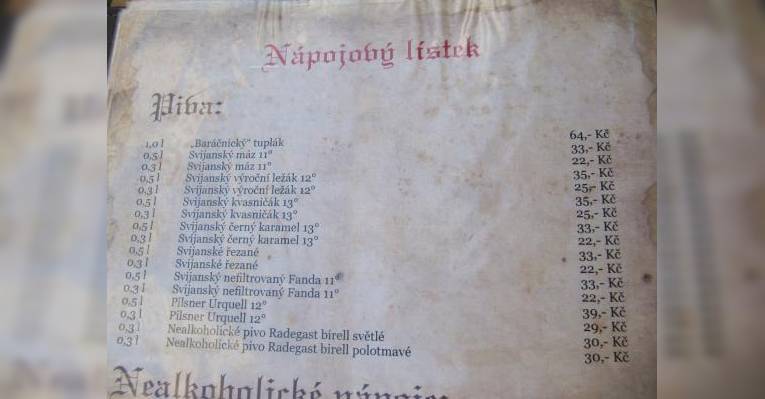 Nápojový lístek
Piva:
1,0 l „Baráčnický" tuplák 64,- Kč
0,5 l Svijanský máz 11° 33,- Kč
0,3 l Svijanský máz 11° 22,- Kč
0,5 l Svijanský výroční ležák 12° 35,- Kč
0,3 l Svijanský výroční ležák 12° 25,- Kč
0,5 l Svijanský kvasničák 13° 35,- Kč
0,3 l Svijanský kvasničák 13° 25,- Kč
0,5 l Svijanský černý karamel 13° 33,- Kč
0,3 l Svijanský černý karamel 13° 22,- Kč
0,5 l Svijanské řezané 33,- Kč
0,3 l Svijanské řezané 22,- Kč
0,5 l Svijanský nefiltrovaný Fanda 11° 33,- Kč
0,3 l Svijanský nefiltrovaný Fanda 11° 22,- Kč
0,5 l Pilsner Urquell 12° 39,- Kč
0,3 l Pilsner Urquell 12° 29,- Kč
0,3 l Nealkoholické pivo Radegast birell světlé 30,- Kč
0,3 l Nealkoholické pivo Radegast birell polotmavé 30,- Kč
Nealkoholické nápoje: